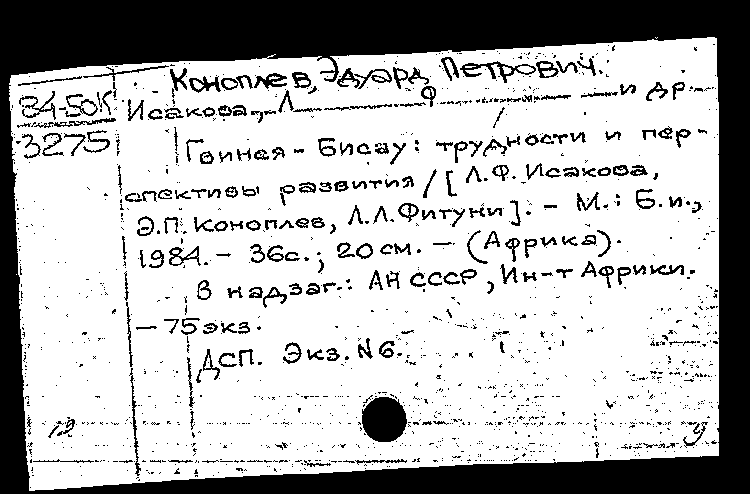 Коноплев, Эдуард Петрович.
84-50К Исакова, Л Ф и др.
3275 Гвинея - Бисау: трудности и пер-
спективы развития / [Л.Ф. Исакова,
Э.П. Коноплев, Л.Л. Фитуни]. - М.: Б.и.,
1984. - 36с.; 20 см. - (Африка).
В надзаг.: АН СССР, Ин-т Африки.
- 75 экз.
ДСП. Экз. N 6.